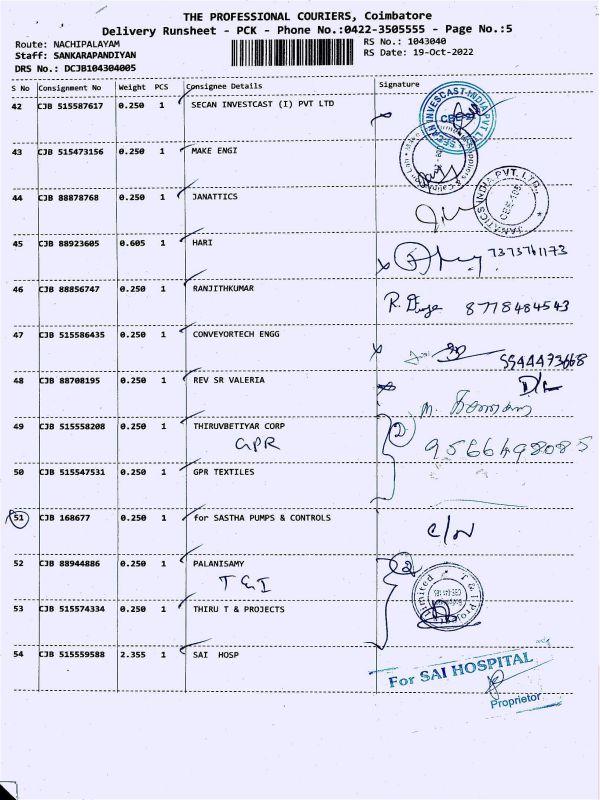 THE PROFESSIONAL COURIERS, Coimbatore
Delivery Runsheet - PCK - Phone No.:0422-3505555 - Page No.:5
Route: NACHIPALAYAM
RS No.: 1043040
Staff: SANKARAPANDIYAN
RS Date: 19-Oct-2022
DRS No.: DCJB104304005
S No Consignment No Weight PCS Consignee Details Signature
42 CJB 515587617 0.250 1 SECAN INVESTCAST (I) PVT LTD
SECAN INVESCAST INDIA PVT LTD
43 CJB 515473156 0.250 1 MAKE ENGI
44 CJB 88878768 0.250 1 JANATTICS
JANATICS INDIA PVT. LTD.,
45 CJB 88923605 0.605 1 HARI
7373761173
46 CJB 88856747 0.250 1 RANJITHKUMAR
8778484543
47 CJB 515586435 0.250 1 CONVEYORTECH ENGG
48 CJB 88708195 0.250 1 REV SR VALERIA
49 CJB 515558208 0.250 1 THIRUVBETIYAR CORP
GPR
2
9566498085
50 CJB 515547531 0.250 1 GPR TEXTILES
51 CJB 168677 0.250 1 for SASTHA PUMPS & CONTROLS
52 CJB 88944886 0.250 1 PALANISAMY
T & I
2
53 CJB 515574334 0.250 1 THIRU T & PROJECTS
54 CJB 515559588 2.355 1 SAI HOSP
For SAI HOSPITAL
Proprietor